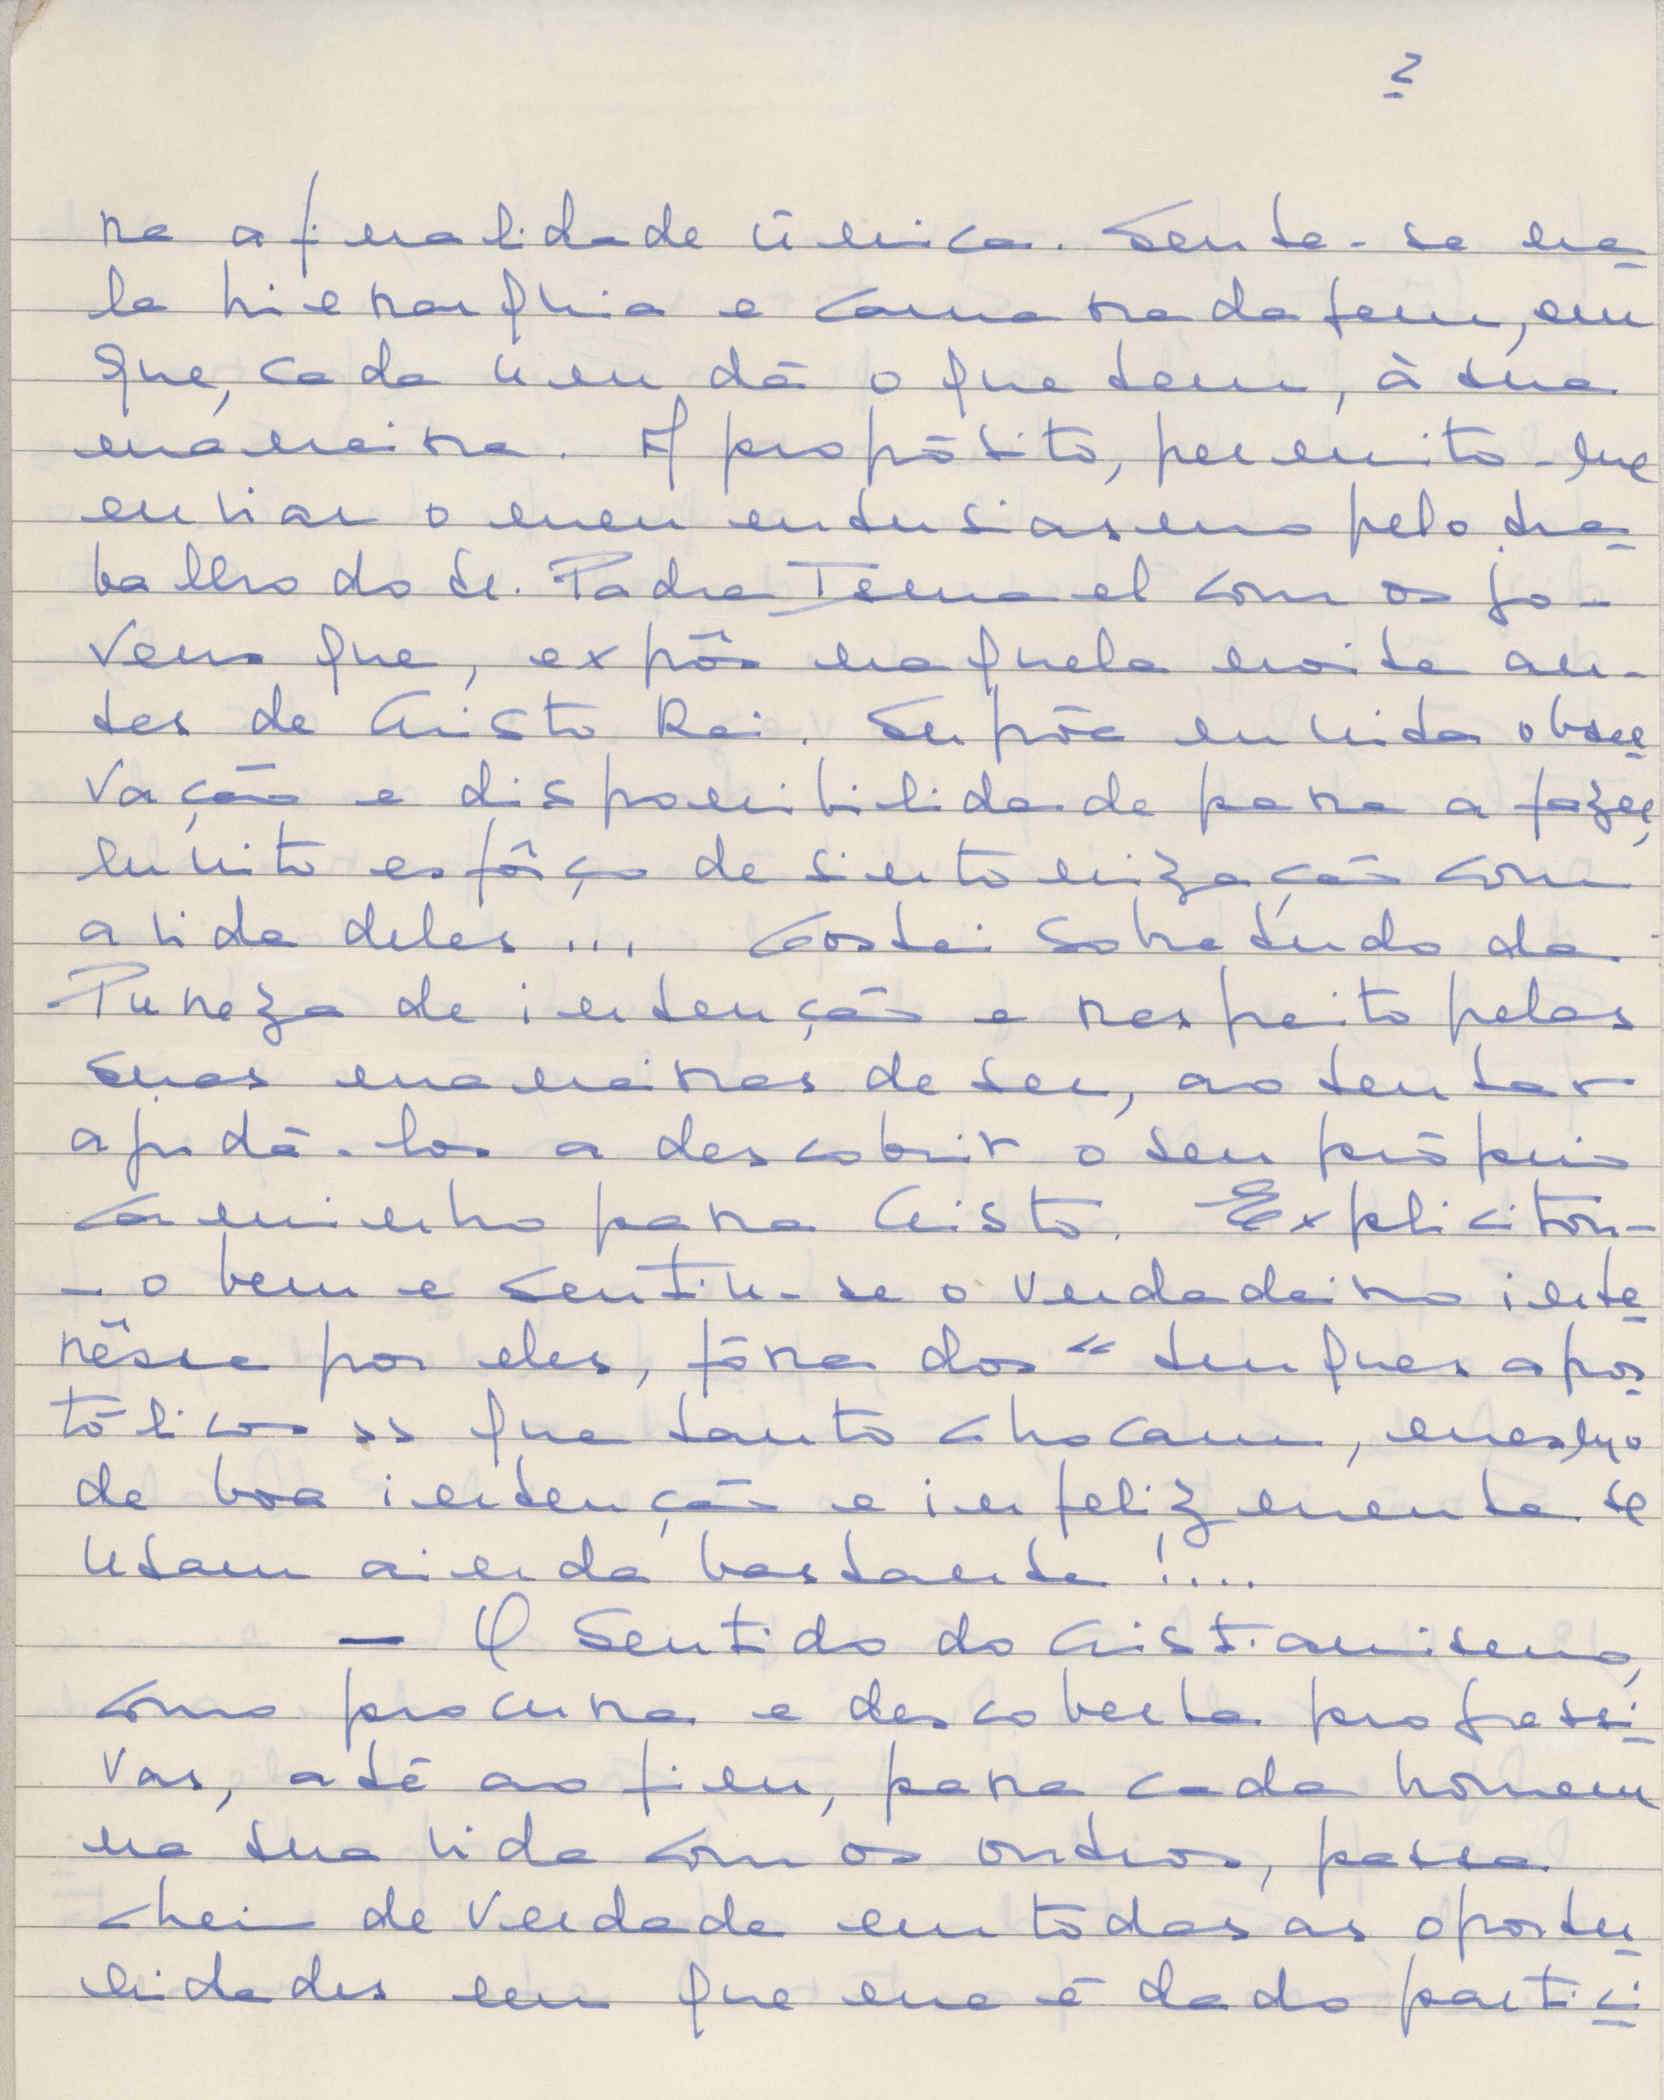 2
ra a finalidade única. Sente-se ne
la hierarquia e camaradagem, em
que, cada um dá o que tem, à sua
maneira. A propósito, permito-me
enviar o meu entusiasmo pelo tra
balho do Sr. Padre Ismael com os jo-
vens que, expôs naquela noite an-
tes de Cristo Rei. Supõe muita obser
vação e disponibilidade para a fazer,
muito esfôrço de sintonização com
a vida deles... Gostei sobretudo da
Pureza de intenção e respeito pelas
suas maneiras de ser, ao tentar
ajudá-los a descobrir o seu próprio
caminho para Cristo. Explicitou-
-o bem e sentiu-se o verdadeiro inte
rêsse por eles, fóra dos "truques apos
tólicos" que tanto chocam, mesmo
de boa intenção e infelizmente se
usam ainda bastante!....
— O Sentido do Cristianismo,
como procura e descoberta progressi
vas, até ao fim, para cada homem
na sua vida com os outros, passa
cheio de Verdade em todas as oportu
nidades em que me é dado partici